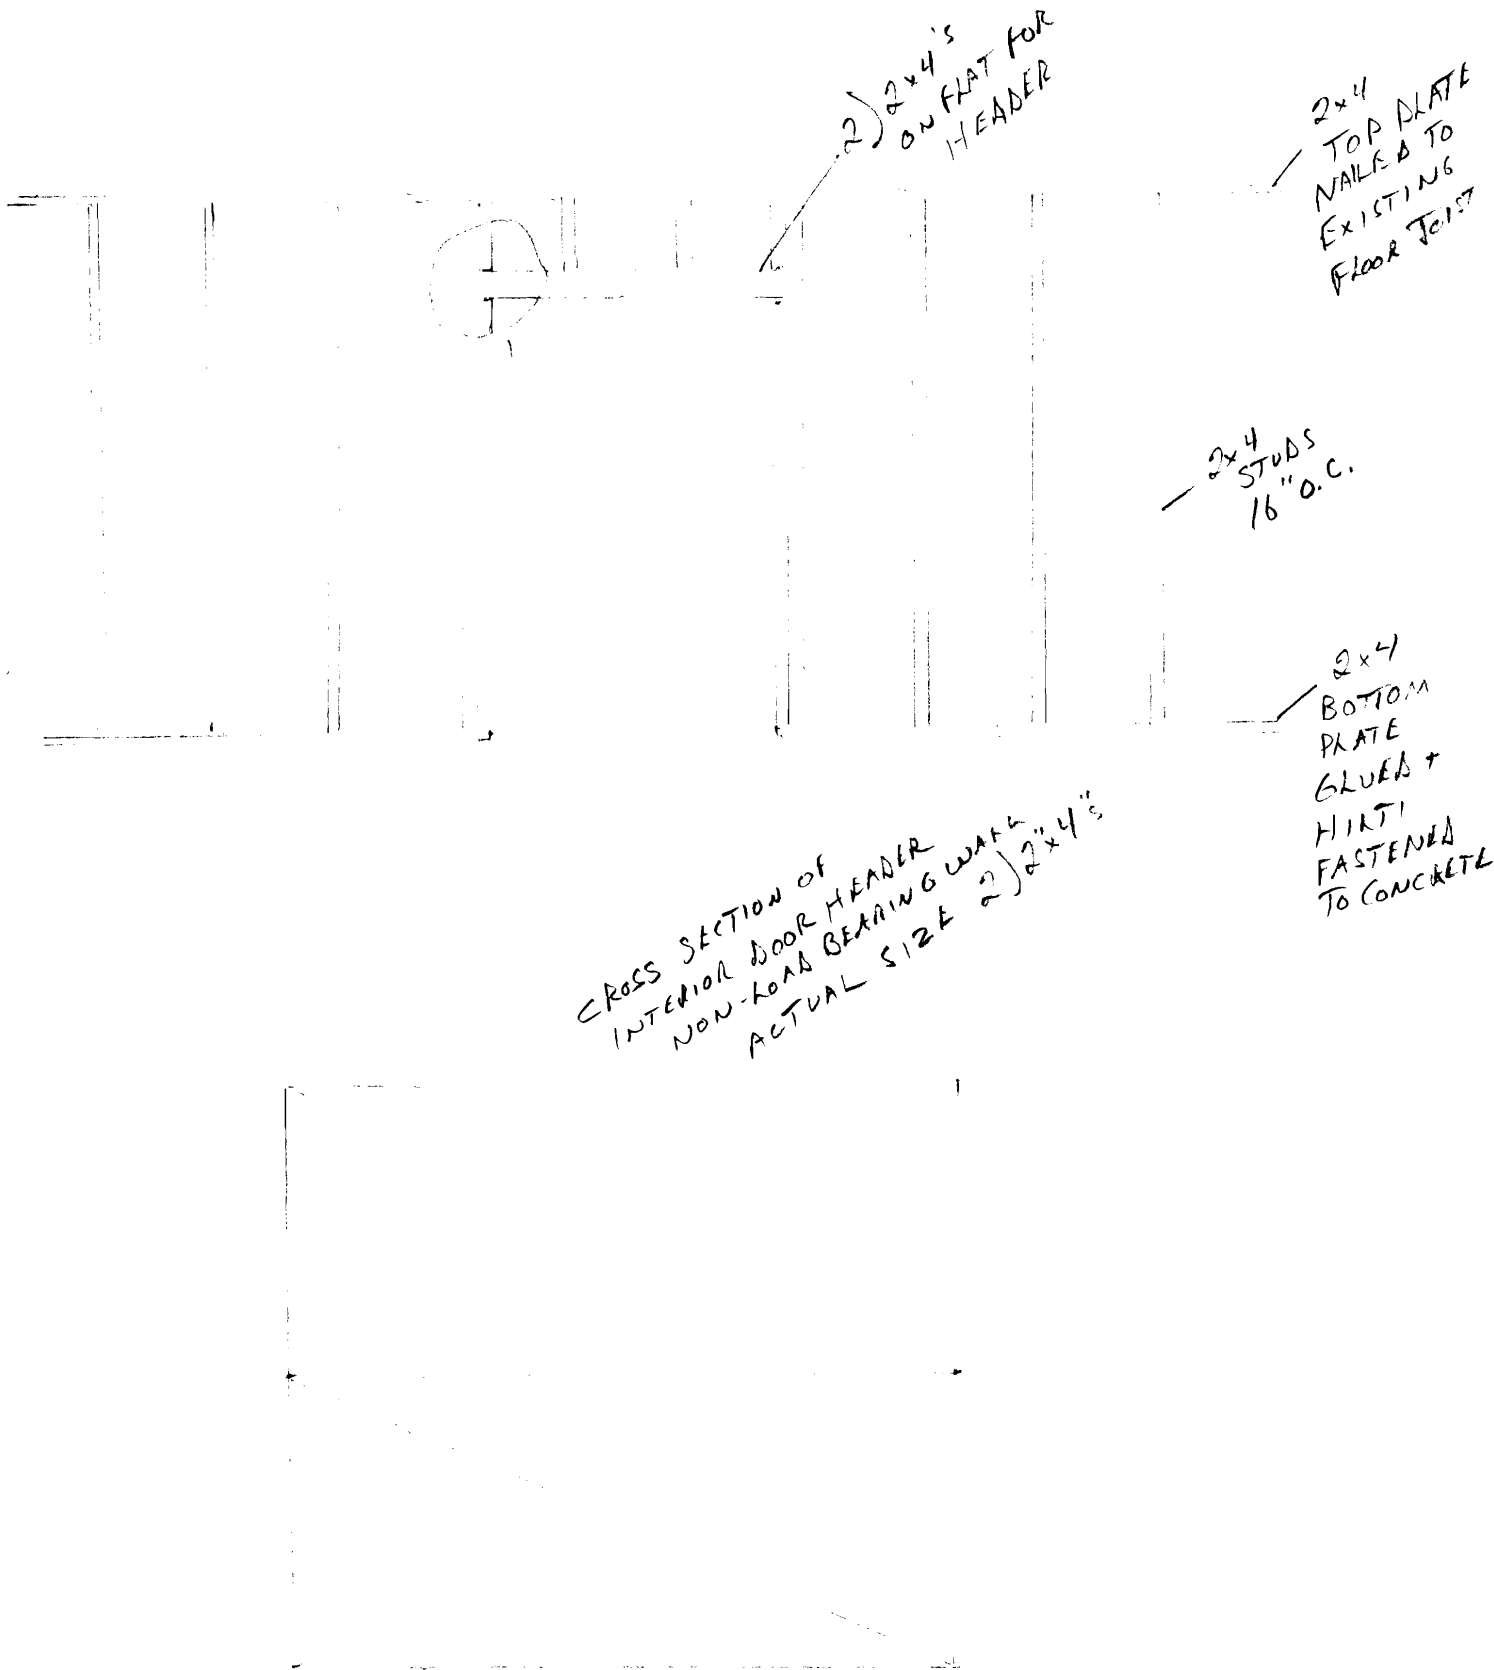 2) 2x4's
ON FLAT FOR
HEADER
2x4
TOP PLATE
NAILED TO
EXISTING
FLOOR JOIST
2x4
STUDS
16" O.C.
2x4
BOTTOM
PLATE
GLUED +
HILTI
FASTENED
TO CONCRETE
CROSS SECTION OF
INTERIOR DOOR HEADER
NON-LOAD BEARING WALL
ACTUAL SIZE 2) 2"x4"s